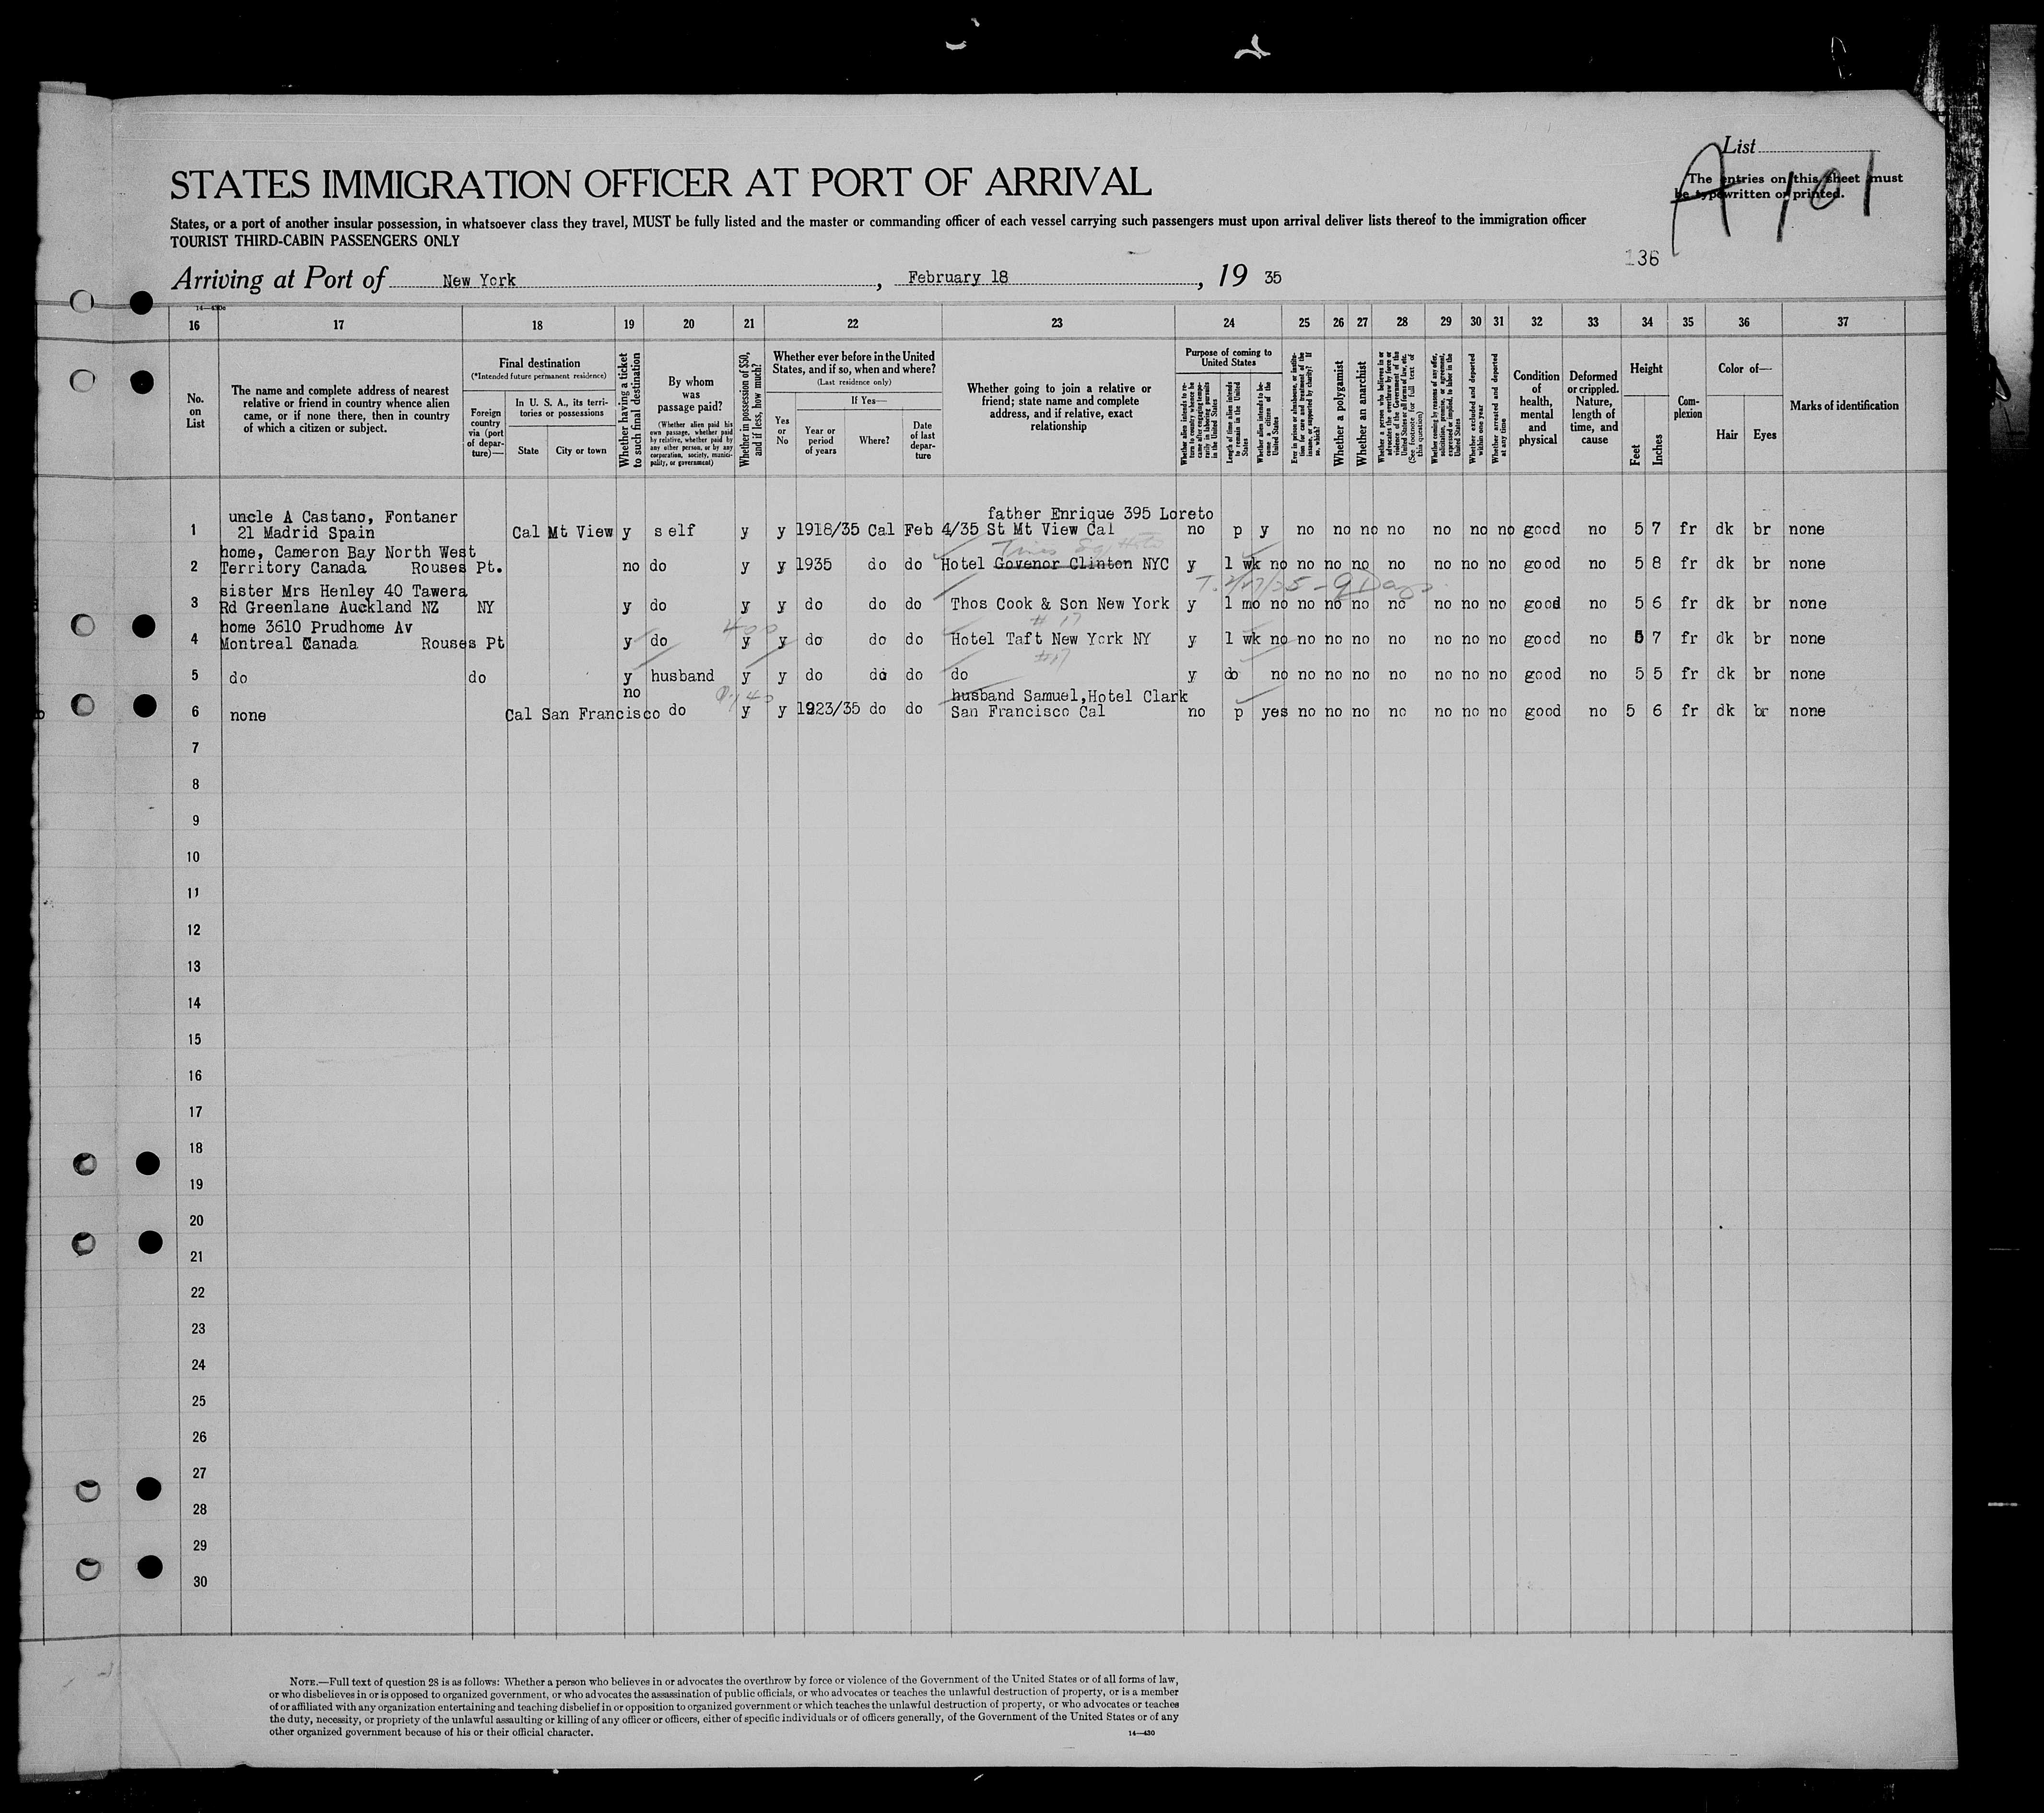 List
The entries on this sheet must
be typewritten or printed.
A 101
STATES IMMIGRATION OFFICER AT PORT OF ARRIVAL
States, or a port of another insular possession, in whatsoever class they travel, MUST be fully listed and the master or commanding officer of each vessel carrying such passengers must upon arrival deliver lists thereof to the immigration officer
TOURIST THIRD-CABIN PASSENGERS ONLY
136
Arriving at Port of New York, February 18, 19 35
16 17 18 19 20 21 22 23 24 25 26 27 28 29 30 31 32 33 34 35 36 37
No. on List
The name and complete address of nearest relative or friend in country whence alien came, or if none there, then in country of which a citizen or subject.
Final destination
(*Intended future permanent residence)
Foreign country via (port of departure)—
In U. S. A., its territories or possessions
State
City or town
Whether having a ticket to such final destination
By whom was passage paid?
(Whether alien paid his own passage, whether paid by relative, whether paid by any other person, or by any corporation, society, municipality, or government)
Whether in possession of $50, and if less, how much?
Whether ever before in the United States, and if so, when and where?
(Last residence only)
Yes or No
If Yes—
Year or period of years
Where?
Date of last departure
Whether going to join a relative or friend; state name and complete address, and if relative, exact relationship
Purpose of coming to United States
Whether alien intends to return to country whence he came after engaging temporarily in laboring pursuits in the United States
Length of time alien intends to remain in the United States
Whether alien intends to become a citizen of the United States
Ever in prison or almshouse, or institution for care and treatment of the insane, or supported by charity? If so, which?
Whether a polygamist
Whether an anarchist
Whether a person who believes in or advocates the overthrow by force or violence of the Government of the United States or all forms of law, etc. (See footnote for full text of this question)
Whether coming by reasons of any offer, solicitation, promise, or agreement, expressed or implied, to labor in the United States
Whether excluded and deported within one year
Whether arrested and deported at any time
Condition of health, mental and physical
Deformed or crippled. Nature, length of time, and cause
Height
Feet
Inches
Complexion
Color of—
Hair
Eyes
Marks of identification
uncle A Castano, Fontaner father Enrique 395 Loreto
1 21 Madrid Spain Cal Mt View y self y y 1918/35 Cal Feb 4/35 St Mt View Cal no p y no no no no no no no good no 5 7 fr dk br none
home, Cameron Bay North West
2 Territory Canada Rouses Pt. no do y y 1935 do do Hotel Govenor Clinton NYC y 1 wk no no no no no no no no good no 5 8 fr dk br none
sister Mrs Henley 40 Tawera
3 Rd Greenlane Auckland NZ NY y do y y do do do Thos Cook & Son New York y 1 mo no no no no no no no no good no 5 6 fr dk br none
home 3610 Prudhome Av
4 Montreal Canada Rouses Pt y do y y do do do Hotel Taft New York NY y 1 wk no no no no no no no no good no 5 7 fr dk br none
5 do do y husband y y do do do do y do no no no no no no no no good no 5 5 fr dk br none
no husband Samuel,Hotel Clark
6 none Cal San Francisco do y y 1923/35 do do San Francisco Cal no p yes no no no no no no no good no 5 6 fr dk br none
7
8
9
10
11
12
13
14
15
16
17
18
19
20
21
22
23
24
25
26
27
28
29
30
NOTE.—Full text of question 28 is as follows: Whether a person who believes in or advocates the overthrow by force or violence of the Government of the United States or of all forms of law,
or who disbelieves in or is opposed to organized government, or who advocates the assassination of public officials, or who advocates or teaches the unlawful destruction of property, or is a member
of or affiliated with any organization entertaining and teaching disbelief in or opposition to organized government or which teaches the unlawful destruction of property, or who advocates or teaches
the duty, necessity, or propriety of the unlawful assaulting or killing of any officer or officers, either of specific individuals or of officers generally, of the Government of the United States or of any
other organized government because of his or their official character.
14—430